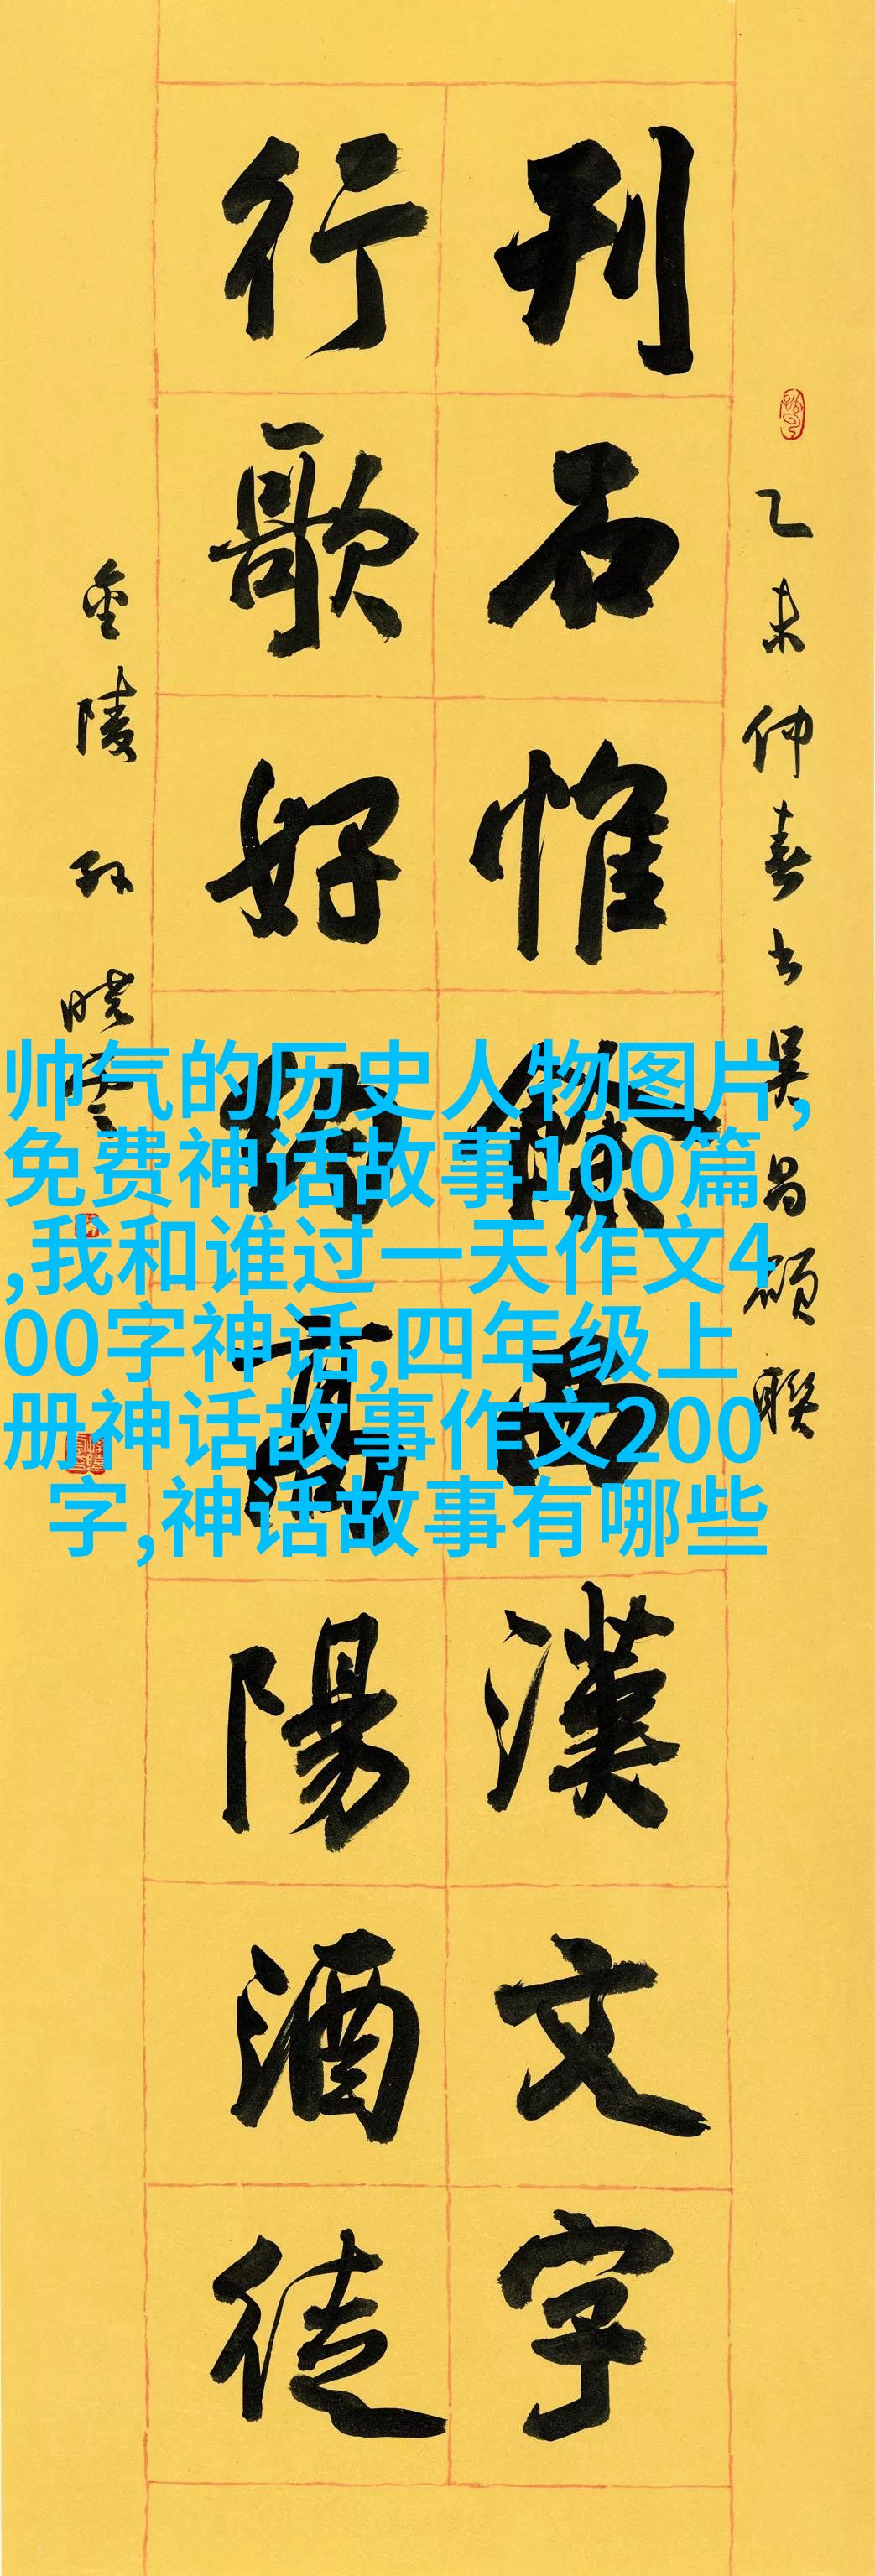 乙未仲春书吴昌碩聯
刊石惟餘西漢文字
行歌好約高陽酒徒
金陵孙晓云
帅气的历史人物图片,
免费神话故事100篇
,我和谁过一天作文4
00字神话,四年级上
册神话故事作文200
字,神话故事有哪些